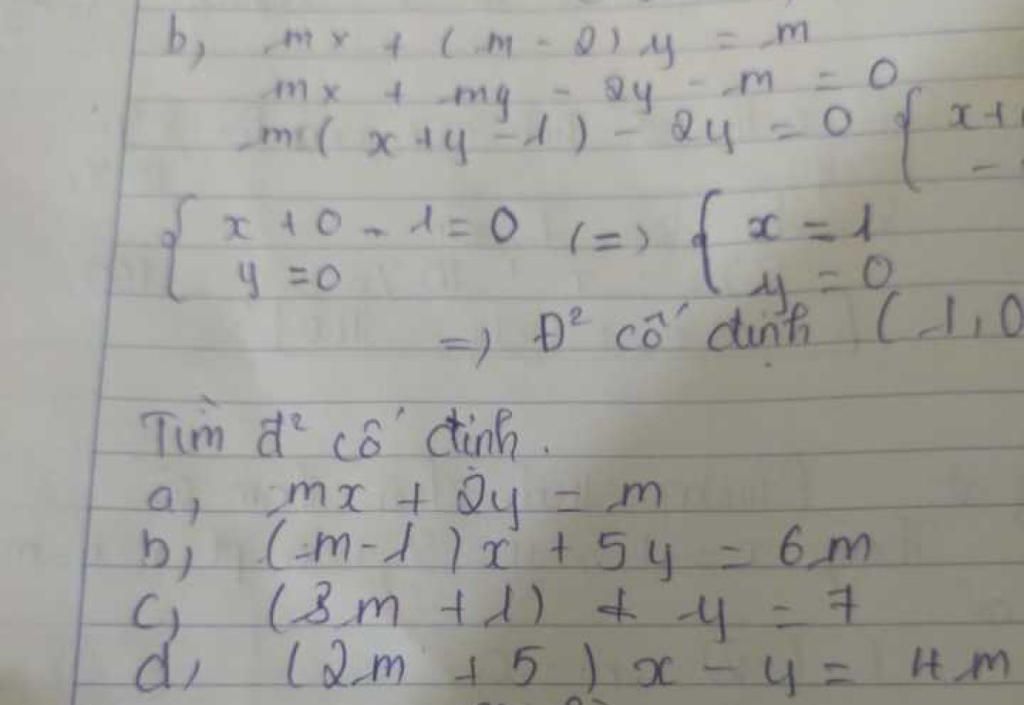 b, mx + (m - 2) y = m
mx + my - 2y - m = 0
m( x + y - 1 ) - 2y = 0 { x +
{ x + 0 - 1 = 0 (=) { x = 1
y = 0 y = 0
=) Đ² cố định ( 1, 0
Tìm đ² cố định.
a, mx + 2y = m
b, (m - 1) x + 5y = 6m
c, (3m + 1) + y = 7
d, (2m + 5) x - y = 4m